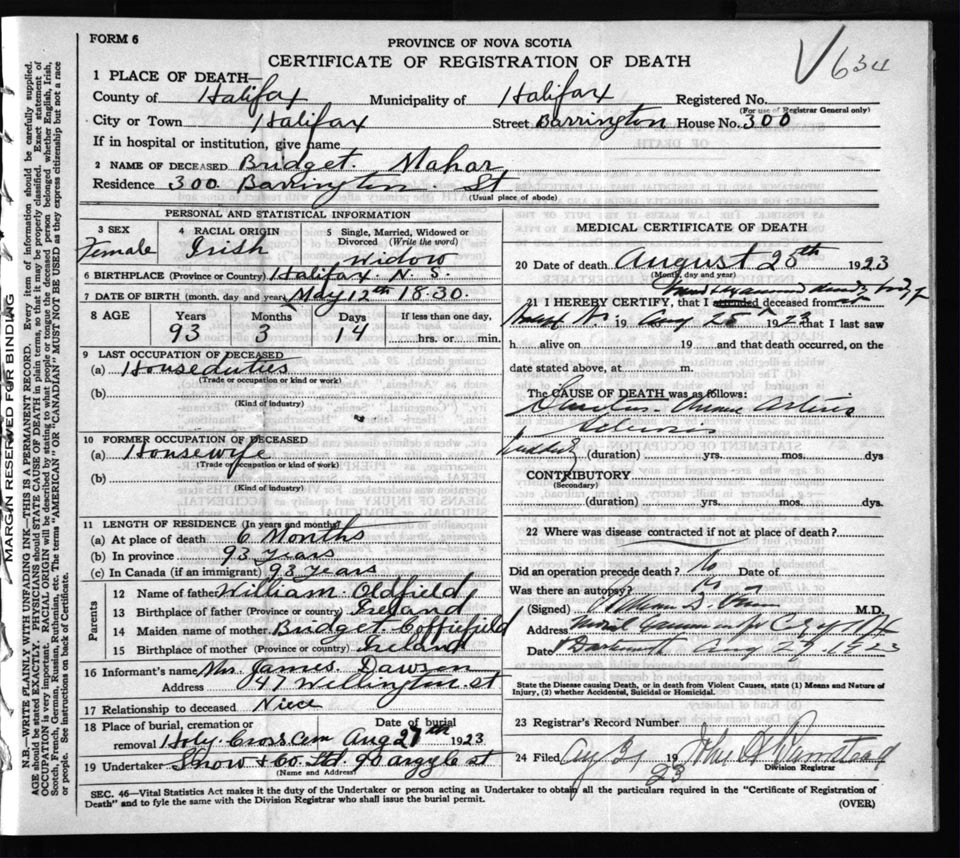 FORM 6
634
PROVINCE OF NOVA SCOTIA
CERTIFICATE OF REGISTRATION OF DEATH
1 PLACE OF DEATH—
County of Halifax Municipality of Halifax Registered No.
(For use of Registrar General only)
City or Town Halifax Street Barrington House No. 300
If in hospital or institution, give name
2 NAME OF DECEASED Bridget. Mahar
Residence 300 Barrington St
(Usual place of abode)
PERSONAL AND STATISTICAL INFORMATION
3 SEX Female
4 RACIAL ORIGIN Irish
5 Single, Married, Widowed or Divorced (Write the word) Widow
6 BIRTHPLACE (Province or Country) Halifax N. S.
7 DATE OF BIRTH (month, day and year) May 12th 1830.
8 AGE Years Months Days If less than one day,
93 3 14 hrs. or min.
9 LAST OCCUPATION OF DECEASED
(a) Houseduties
(Trade or occupation or kind of work)
(b)
(Kind of industry)
10 FORMER OCCUPATION OF DECEASED
(a) Housewife
(Trade or occupation or kind of work)
(b)
(Kind of industry)
11 LENGTH OF RESIDENCE (In years and months)
(a) At place of death 6 Months
(b) In province 93 years
(c) In Canada (if an immigrant) 93 years
Parents
12 Name of father William Oldfield
13 Birthplace of father (Province or country) Ireland
14 Maiden name of mother Bridget
15 Birthplace of mother (Province or country) Ireland
16 Informant's name Mrs. James. Dawson
Address 47 Wellington st
17 Relationship to deceased Niece
18 Place of burial, cremation or removal Holy Cross Cem
Date of burial Aug 27th 1923
19 Undertaker Snow & Co. Ltd. 90 argyle st
(Name and Address)
MEDICAL CERTIFICATE OF DEATH
20 Date of death August 25th 1923
(Month, day and year)
21 I HEREBY CERTIFY, that I attended deceased from
19 Aug 25 1923 that I last saw
h alive on 19 and that death occurred, on the
date stated above, at m.
The CAUSE OF DEATH was as follows:
Sclerosis
(duration) yrs. mos. dys
CONTRIBUTORY
(Secondary)
(duration) yrs. mos. dys.
22 Where was disease contracted if not at place of death?
Did an operation precede death? No Date of
Was there an autopsy? No
(Signed) William D. M.D.
Address
Date Dartmouth Aug 27. 1923
State the Disease causing Death, or in death from Violent Causes, state (1) Means and Nature of
Injury, (2) whether Accidental, Suicidal or Homicidal.
23 Registrar's Record Number
24 Filed 19 23
Division Registrar
SEC. 46—Vital Statistics Act makes it the duty of the Undertaker or person acting as Undertaker to obtain all the particulars required in the "Certificate of Registration of
Death" and to fyle the same with the Division Registrar who shall issue the burial permit.
(OVER)
MARGIN RESERVED FOR BINDING
N.B.—WRITE PLAINLY WITH UNFADING INK—THIS IS A PERMANENT RECORD. Every item of information should be carefully supplied.
AGE should be stated EXACTLY. PHYSICIANS should STATE CAUSE OF DEATH in plain terms, so that it may be properly classified. Exact statement of
OCCUPATION is very important. RACIAL ORIGIN will be described by stating to what people or tongue the deceased person belonged whether English, Irish,
Scotch, French, German, Russian, Ruthenian, etc. The terms "AMERICAN" OR "CANADIAN" MUST NOT BE USED as they express citizenship but not a race
or people. See instructions on back of Certificate.